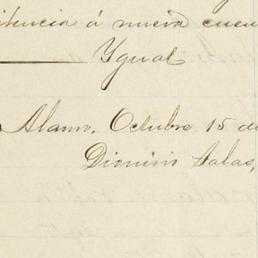 itencia á nueva cuen
Ygual
Alamo, Octubre 15 de
Dionisio Salas,